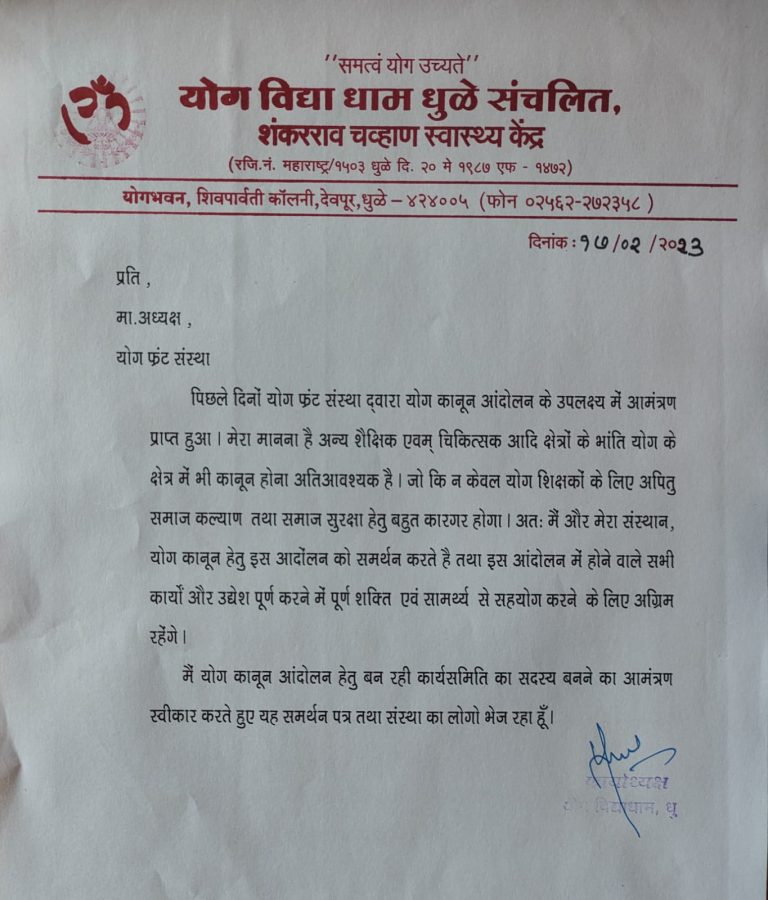 "समत्वं योग उच्यते"
योग विद्या धाम धुळे संचलित,
शंकरराव चव्हाण स्वास्थ्य केंद्र
(रजि.नं. महाराष्ट्र/१५०३ धुळे दि. २० मे १९८७ एफ - १४७२)
योगभवन, शिवपार्वती कॉलनी,देवपूर,धुळे – ४२४००५ (फोन ०२५६२-२७२३५८ )
दिनांक : १७/०२ /२०२३
प्रति ,
मा.अध्यक्ष ,
योग फ्रंट संस्था
पिछले दिनों योग फ्रंट संस्था द्वारा योग कानून आंदोलन के उपलक्ष्य में आमंत्रण
प्राप्त हुआ । मेरा मानना है अन्य शैक्षिक एवम् चिकित्सक आदि क्षेत्रों के भांति योग के
क्षेत्र में भी कानून होना अतिआवश्यक है । जो कि न केवल योग शिक्षकों के लिए अपितु
समाज कल्याण तथा समाज सुरक्षा हेतु बहुत कारगर होगा । अतः मैं और मेरा संस्थान,
योग कानून हेतु इस आदोंलन को समर्थन करते है तथा इस आंदोलन में होने वाले सभी
कार्यों और उद्येश पूर्ण करने में पूर्ण शक्ति एवं सामर्थ्य से सहयोग करने के लिए अग्रिम
रहेंगे ।
मैं योग कानून आंदोलन हेतु बन रही कार्यसमिति का सदस्य बनने का आमंत्रण
स्वीकार करते हुए यह समर्थन पत्र तथा संस्था का लोगो भेज रहा हूँ ।
कार्याध्यक्ष
योग विद्याधाम, धु